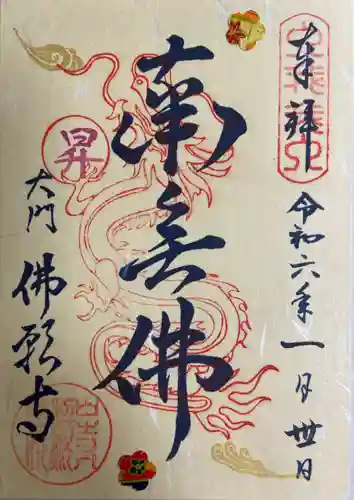 奉拝
令和六年一月卅日
南无佛
昇
大門
佛願寺